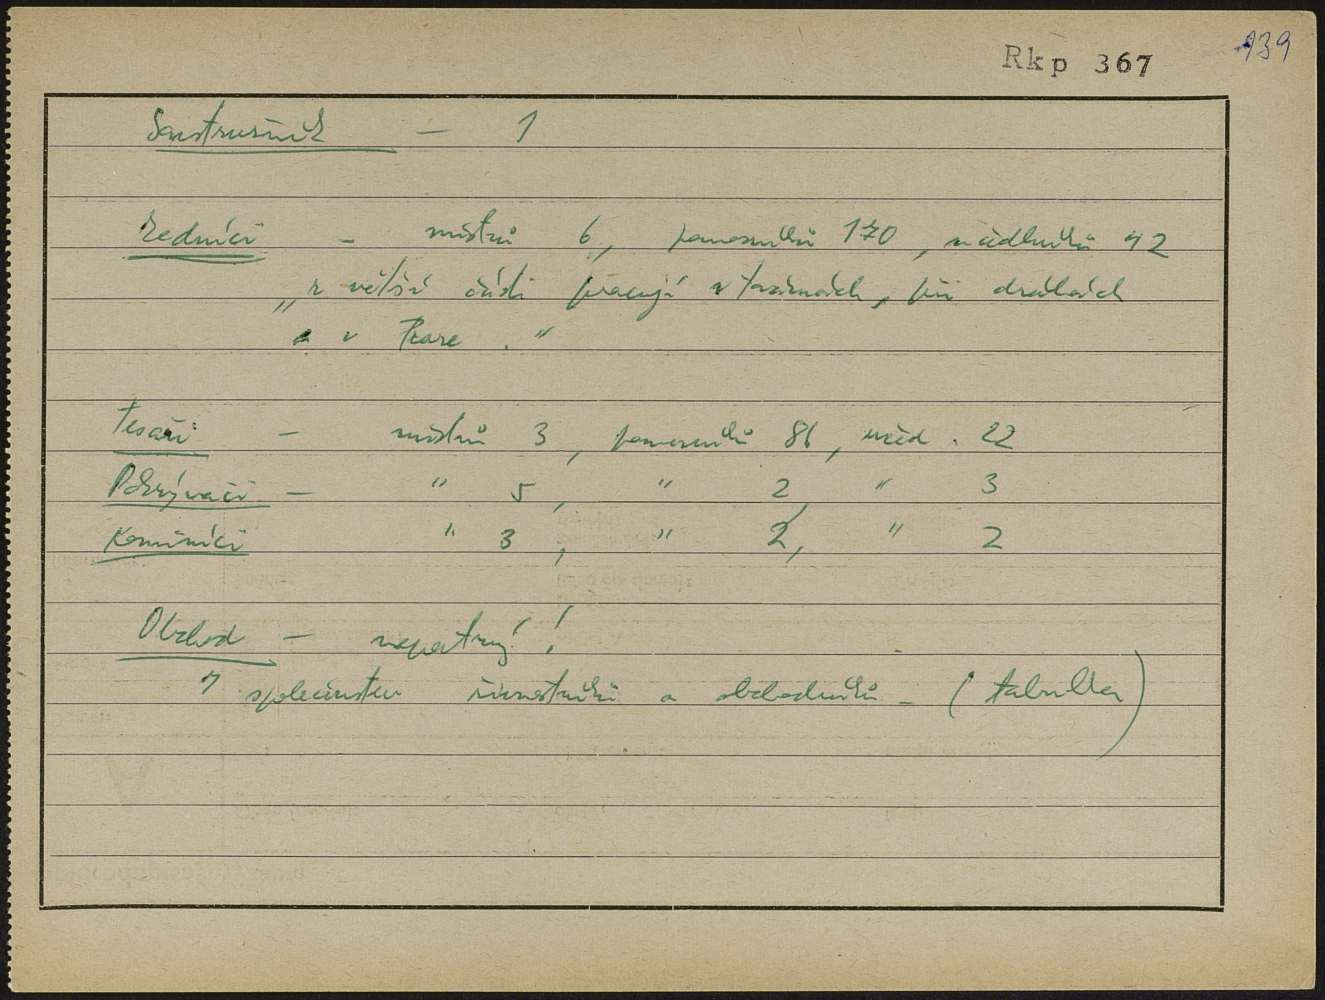 Rkp 367
139
Soustružník — 1
Zedníci — mistrů 6, pomocníků 170, učedníků 42
„z větší části pracují v továrnách, při drahách
a v Praze."
Tesaři — mistrů 3, pomocníků 86, učed. 22
Pokrývači — " 5, " 2, " 3
Kominíci " 3, " 2, " 2
Obchod — nepatrný!
7 společenstev živnostníků a obchodníků – (tabulka)